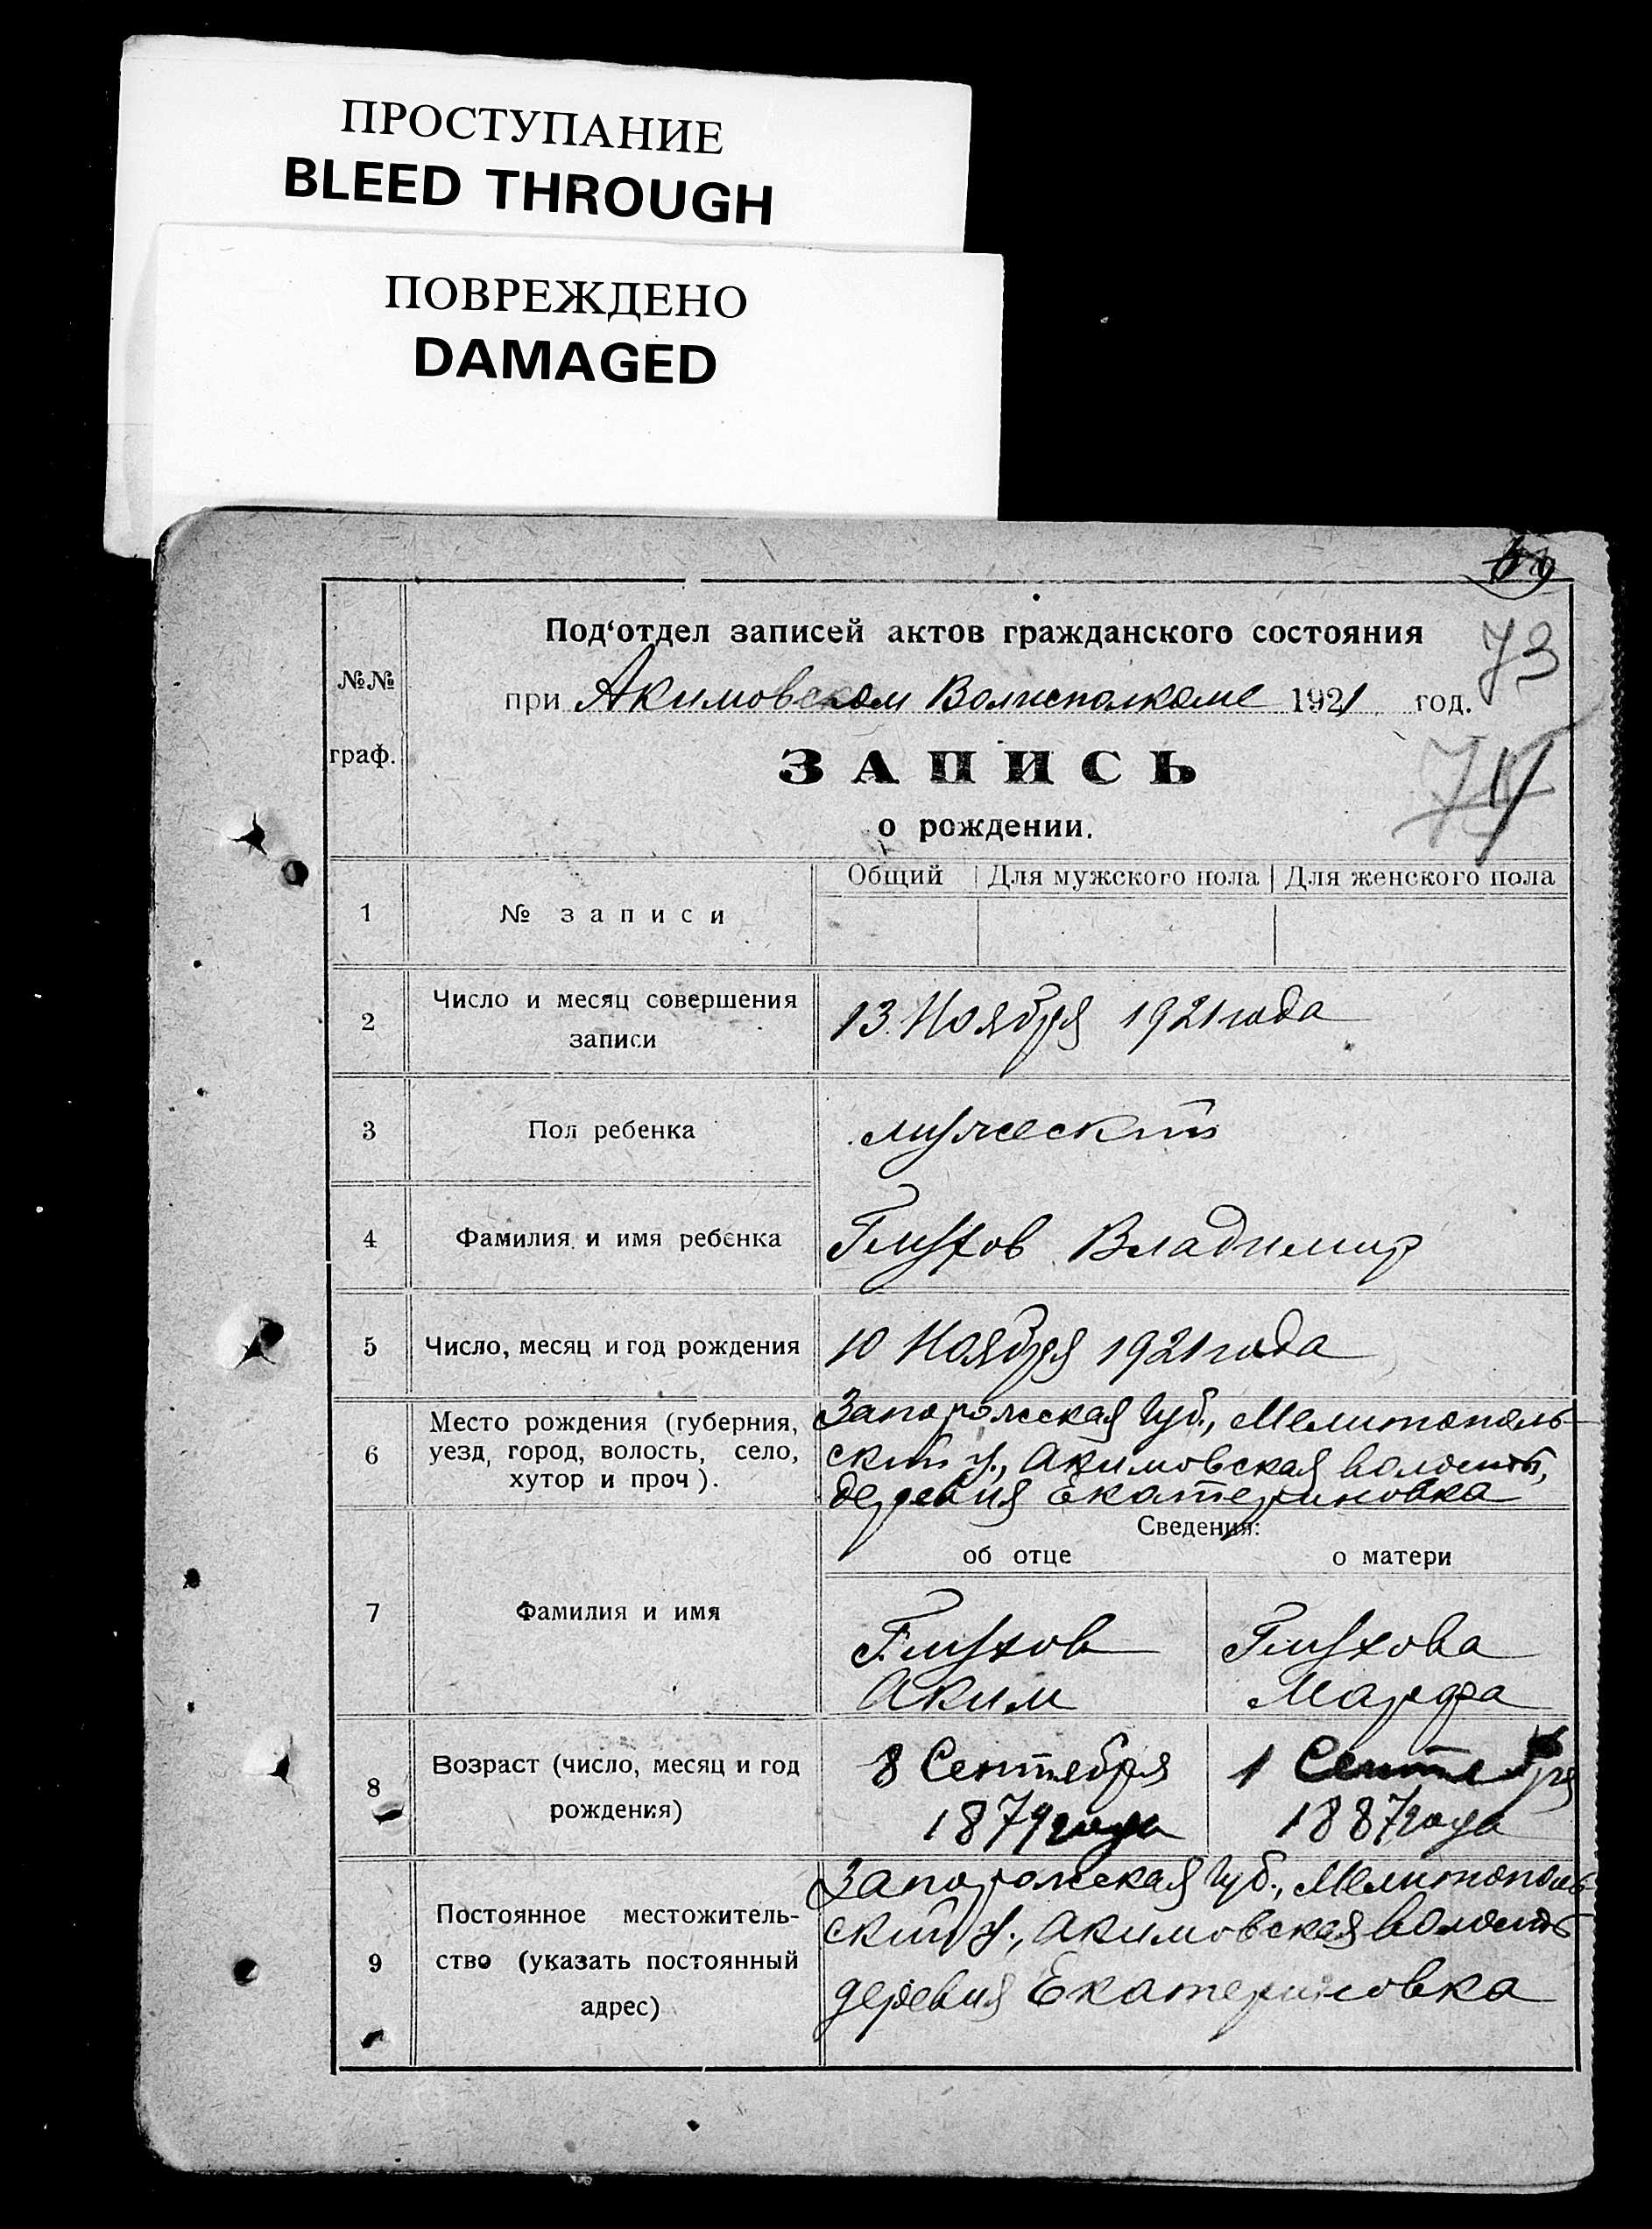 ПРОСТУПАНИЕ
BLEED THROUGH
ПОВРЕЖДЕНО
DAMAGED
Под‘отдел записей актов гражданского состояния
73
№№
при Акимовском Волисполкоме 1921 год.
граф.
ЗАПИСЬ
о рождении.
Общий Для мужского пола Для женского пола
1 № записи
2 Число и месяц совершения
записи
13 Ноября 1921 года
3 Пол ребенка мужеский
4 Фамилия и имя ребенка Глухов Владимир
5 Число, месяц и год рождения 10 Ноября 1921 года
6 Место рождения (губерния,
уезд, город, волость, село,
хутор и проч).
Запорожская Губ., Мелитополь-
ский у., Акимовская волость,
деревня Екатериновка
Сведения:
об отце о матери
7 Фамилия и имя
Глухов Глухова
Аким Марфа
8 Возраст (число, месяц и год
рождения)
8 Сентября 1 Сентября
1879 года 1887 года
9 Постоянное местожитель-
ство (указать постоянный
адрес)
Запорожская Губ., Мелитополь-
ский у., Акимовская волость
деревня Екатериновка